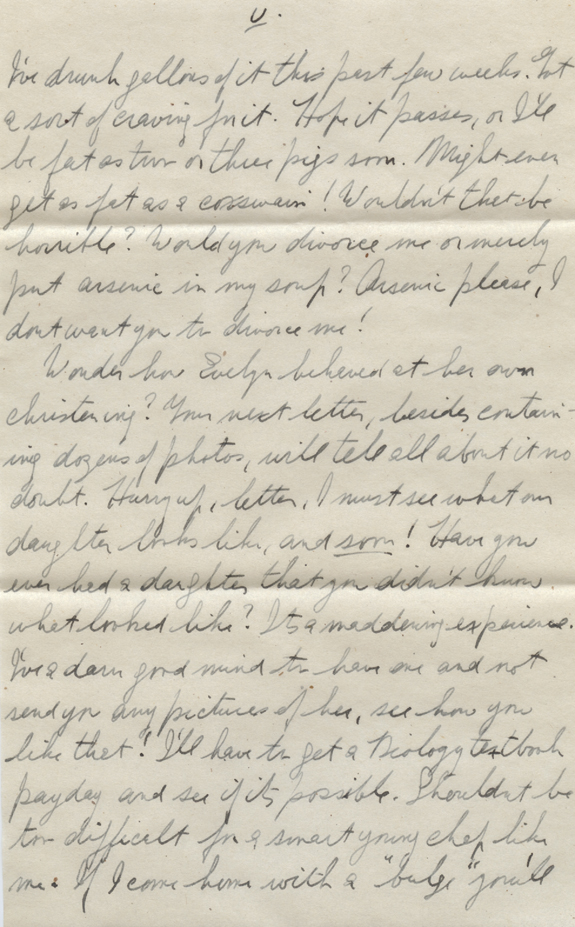 U.
I've drunk gallons of it this past few weeks. Got
a sort of craving for it. Hope it passes, or I'll
be fat as two or three pigs soon. Might even
get as fat as a coxswain! Wouldn't that be
horrible? Would you divorce me or merely
put arsenic in my soup? Arsenic please, I
dont want you to divorce me!
Wonder how Evelyn behaved at her own
christening? Your next letter, besides contain-
ing dozens of photos, will tell all about it no
doubt. Hurry up, letter, I must see what our
daughter looks like, and soon! Have you
ever had a daughter that you didn't know
what looked like? Its a maddening experience.
I've a darn good mind to have one and not
send you any pictures of her, see how you
like that! I'll have to get a Biology textbook
payday and see if its possible. Shouldnt be
too difficult for a smart young chap like
me. If I come home with a "bulge" you'll